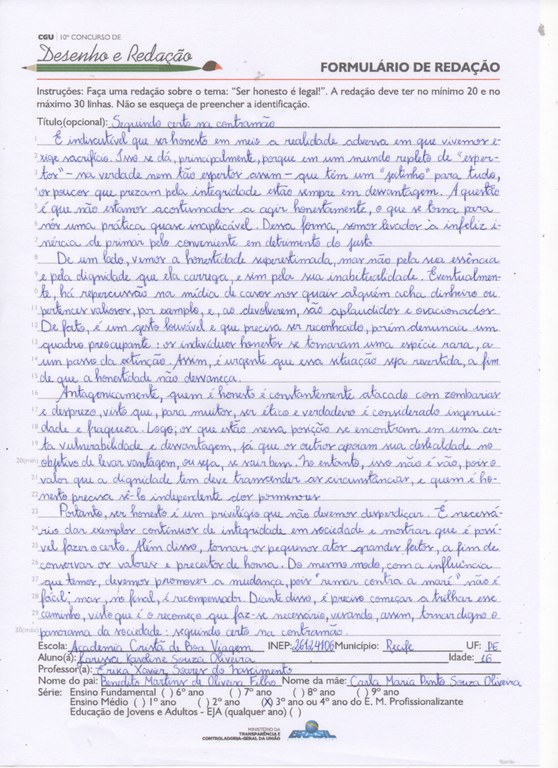 CGU | 10º CONCURSO DE
Desenho e Redação
FORMULÁRIO DE REDAÇÃO
Instruções: Faça uma redação sobre o tema: "Ser honesto é legal!". A redação deve ter no mínimo 20 e no
máximo 30 linhas. Não se esqueça de preencher a identificação.
Título(opcional): Seguindo certo na contramão
É indiscutível que ser honesto em meio a realidade adversa em que vivemos e-
xige sacrifício. Isso se dá, principalmente, porque em um mundo repleto de "esper-
tos" - na verdade nem tão espertos assim - que têm um "jeitinho" para tudo,
os poucos que prezam pela integridade estão sempre em desvantagem. A questão
é que não estamos acostumados a agir honestamente, o que se torna para
nós uma prática quase inaplicável. Dessa forma, somos levados a infeliz i-
nércia de primar pelo conveniente em detrimento do justo.
De um lado, vemos a honestidade superestimada, mas não pela sua essência
e pela dignidade que ela carrega, e sim pela sua inabitualidade. Eventualmen-
te, há repercussão na mídia de casos nos quais alguém acha dinheiro ou
pertences valiosos, por exemplo, e, ao devolverem, são aplaudidos e ovacionados.
De fato, é um gesto louvável e que precisa ser reconhecido, porém denuncia um
quadro preocupante: os indivíduos honestos se tornaram uma espécie rara, a
um passo da extinção. Assim, é urgente que essa situação seja revertida, a fim
de que a honestidade não desvaneça.
Antagonicamente, quem é honesto é constantemente atacado com zombarias
e desprezo, visto que, para muitos, ser ético e verdadeiro é considerado ingenui-
dade e fraqueza. Logo, os que estão nessa posição se encontram em uma cer-
ta vulnerabilidade e desvantagem, já que os outros apoiam sua deslealdade no
objetivo de levar vantagem, ou seja, se sair bem. No entanto, isso não é vão, pois o
valor que a dignidade tem deve transcender as circunstâncias, e quem é ho-
nesto precisa sê-lo independente dos pormenores.
Portanto, ser honesto é um privilégio que não devemos desperdiçar. É necessá-
rio dar exemplos contínuos de integridade em sociedade e mostrar que é possí-
vel fazer o certo. Além disso, tornar os pequenos atos grandes feitos, a fim de
conservar os valores e preceitos de honra. Do mesmo modo, com a influência
que temos, devemos promover a mudança, pois "remar contra a maré" não é
fácil; mas, no final, é recompensador. Diante disso, é preciso começar a trilhar esse
caminho, visto que é o recomeço que faz-se necessário, visando, assim, tornar digno o
panorama da sociedade: seguindo certo na contramão.
Escola: Academia Cristã de Boa Viagem INEP: 26124106 Município: Recife UF: PE
Aluno(a): Karissa Karoline Souza Oliveira Idade: 16
Professor(a): Erika Xavier Soares do Nascimento
Nome do pai: Benedito Martins de Oliveira Filho Nome da mãe: Carla Maria Pinto Souza Oliveira
Série: Ensino Fundamental ( ) 6º ano ( ) 7º ano ( ) 8º ano ( ) 9º ano
Ensino Médio ( ) 1º ano ( ) 2º ano (X) 3º ano ou 4º ano do E. M. Profissionalizante
Educação de Jovens e Adultos - EJA (qualquer ano) ( )
MINISTÉRIO DA
TRANSPARÊNCIA E
CONTROLADORIA-GERAL DA UNIÃO
BRASIL